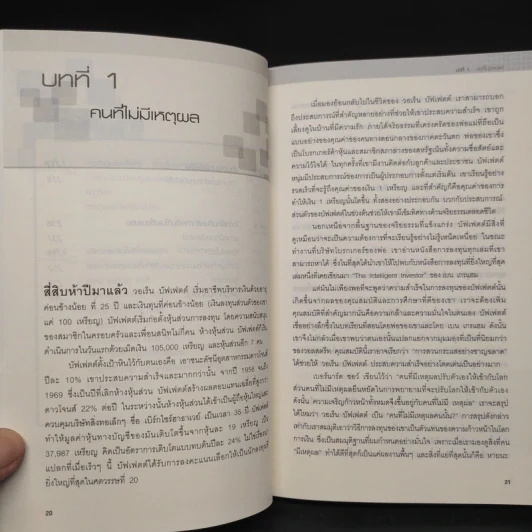 บทที่ 1
คนที่ไม่มีเหตุผล
สี่สิบห้าปีมาแล้ว วอเร็น บัฟเฟตต์ เริ่มอาชีพบริหารเงินด้วยอายุ
ค่อนข้างน้อย ที่ 25 ปี และเงินทุนที่ค่อนข้างน้อย (เงินลงทุนส่วนตัวของเขา
แค่ 100 เหรียญ) บัฟเฟตต์เริ่มก่อตั้งหุ้นส่วนการลงทุน โดยความสนับสนุน
ของสมาชิกในครอบครัวและเพื่อนสนิทไม่กี่คน ห้างหุ้นส่วน บัฟเฟตต์ที่เริ่ม
ดำเนินการในวันแรกด้วยเม็ดเงิน 105,000 เหรียญ และหุ้นส่วนอีก 7 คน
บัฟเฟตต์ตั้งเป้าหินไว้กับตนเองคือ เอาชนะดัชนีอุตสาหกรรมดาวโจนส์
ปีละ 10% เขาประสบความสำเร็จและมากกว่านั้น จากปี 1956 จนถึง
1969 ซึ่งเป็นปีที่เลิกห้างหุ้นส่วน บัฟเฟตต์สร้างผลตอบแทนเฉลี่ยที่สูงกว่า
ดาวโจนส์ 22% ต่อปี ในระหว่างนั้นห้างหุ้นส่วนได้เข้าเป็นผู้ถือหุ้นใหญ่และ
ควบคุมบริษัทสิ่งทอเล็กๆ ชื่อ เบิร์กไชร์ฮาธาเวย์ เป็นเวลา 35 ปี บัฟเฟตต์
ทำให้มูลค่าหุ้นทางบัญชีของมันเติบโตขึ้นจากหุ้นละ 19 เหรียญ เป็น
37,987 เหรียญ คิดเป็นอัตราการเติบโตแบบทบต้นปีละ 24% ไม่ใช่เรื่อง
แปลกที่เมื่อเร็วๆ นี้ บัฟเฟตต์ได้รับการลงคะแนนเลือกให้เป็นนักลงทุนที่
ยิ่งใหญ่ที่สุดในศตวรรษที่ 20
20
บทที่ 1
เมื่อมองย้อนกลับไปในชีวิตของ วอเร็น บัฟเฟตต์ เราสามารถบอก
ถึงประสบการณ์ที่สำคัญหลายอย่างที่ช่วยให้เขาประสบความสำเร็จ เขาถูก
เลี้ยงดูในบ้านที่มีความรัก ภายใต้จริยธรรมที่เคร่งครัดของพ่อแม่ที่ถือเป็น
แบบอย่างของคุณค่าของคนทางตอนกลางของภาคตะวันตก พ่อของเขาซึ่ง
เป็นโบรกเกอร์ค้าหุ้นและสมาชิกสภาล่างของสหรัฐเน้นทั้งความซื่อสัตย์และ
ความไว้ใจได้ ในทุกครั้งที่เขามีงานติดต่อกับลูกค้าและประชาชน บัฟเฟตต์
หนุ่มมีประสบการณ์ของการเป็นผู้ประกอบการตั้งแต่เริ่มต้น เขาเรียนรู้อย่าง
รวดเร็วที่จะรู้ถึงคุณค่าของเงิน 1 เหรียญ และที่สำคัญก็คือคุณค่าของการ
ทำให้เงิน 1 เหรียญนั้นโตขึ้น ทั้งสองอย่างประกอบกัน บวกกับประสบการณ์
ส่วนตัวของบัฟเฟตต์ในช่วงต้นช่วยให้เขามีเข็มทิศทางด้านจริยธรรมตลอดชีวิต
นอกเหนือจากพื้นฐานของจริยธรรมที่แข็งแกร่ง บัฟเฟตต์มีสิ่งที่
ดูเหมือนว่าจะเป็นความต้องการที่จะเรียนรู้อย่างไม่รู้เหน็ดเหนื่อย ในขณะ
ทำงานที่บริษัทโบรกเกอร์ของพ่อ เขาอ่านหนังสือการลงทุนทุกเล่มที่เขา
สามารถหาได้ ซึ่งในที่สุดได้นำเขาให้ไปพบกับหนังสือการลงทุนที่ยิ่งใหญ่ที่สุด
เล่มหนึ่งที่เคยเขียนมา "The Intelligent Investor" ของ เบน เกรแฮม
แต่นั่นไม่เพียงพอที่จะพูดว่าความสำเร็จในการลงทุนของบัฟเฟตต์นั้น
เกิดขึ้นจากผลของคุณสมบัติและการศึกษาที่ดีของเขา เราจะต้องเพิ่ม
คุณสมบัติที่สำคัญมากนั่นคือความกล้าและความมั่นใจในตนเอง บัฟเฟตต์
เชื่ออย่างลึกซึ้งในบทเรียนที่สอนโดยพ่อของเขาและโดย เบน เกรแฮม ดังนั้น
เขาจึงไม่กลัวเมื่อเขาพบว่าตนเองนั้นแปลกแยกจากมุมมองที่เป็นที่นิยมกว่า
ของวอลสตรีท คุณสมบัตินี้เราอาจเรียกว่า "การสวนกระแสอย่างชาญฉลาด"
ได้ช่วยให้ วอเร็น บัฟเฟตต์ ประสบความสำเร็จอย่างโดดเด่นเป็นอย่างมาก
เบอร์นาร์ด ชอว์ เขียนไว้ว่า "คนที่มีเหตุผลปรับตัวเองให้เข้ากับโลก
ส่วนคนที่ไม่มีเหตุผลยืนหยัดในการพยายามที่จะปรับโลกให้เข้ากับตัวเอง
ดังนั้น ความเจริญก้าวหน้าทั้งหมดจึงขึ้นอยู่กับคนที่ไม่มี เหตุผล" เราจะสรุป
ได้ไหมว่า วอเร็น บัฟเฟตต์ เป็น "คนที่ไม่มีเหตุผลคนนั้น?" การสรุปดังกล่าว
เท่ากับเราสมมุติเอาว่าวิธีการลงทุนของเขาเป็นตัวแทนของความก้าวหน้าในโลก
การเงิน ซึ่งเป็นสมมุติฐานที่ผมกำหนดอย่างมั่นใจ เพราะเมื่อเรามองดูสิ่งที่คน
"มีเหตุผล" ทำได้ดีที่สุดก็เป็นแค่ผลงานพื้นๆ และสิ่งที่แย่ที่สุดนั้นก็คือ หายนะ
21